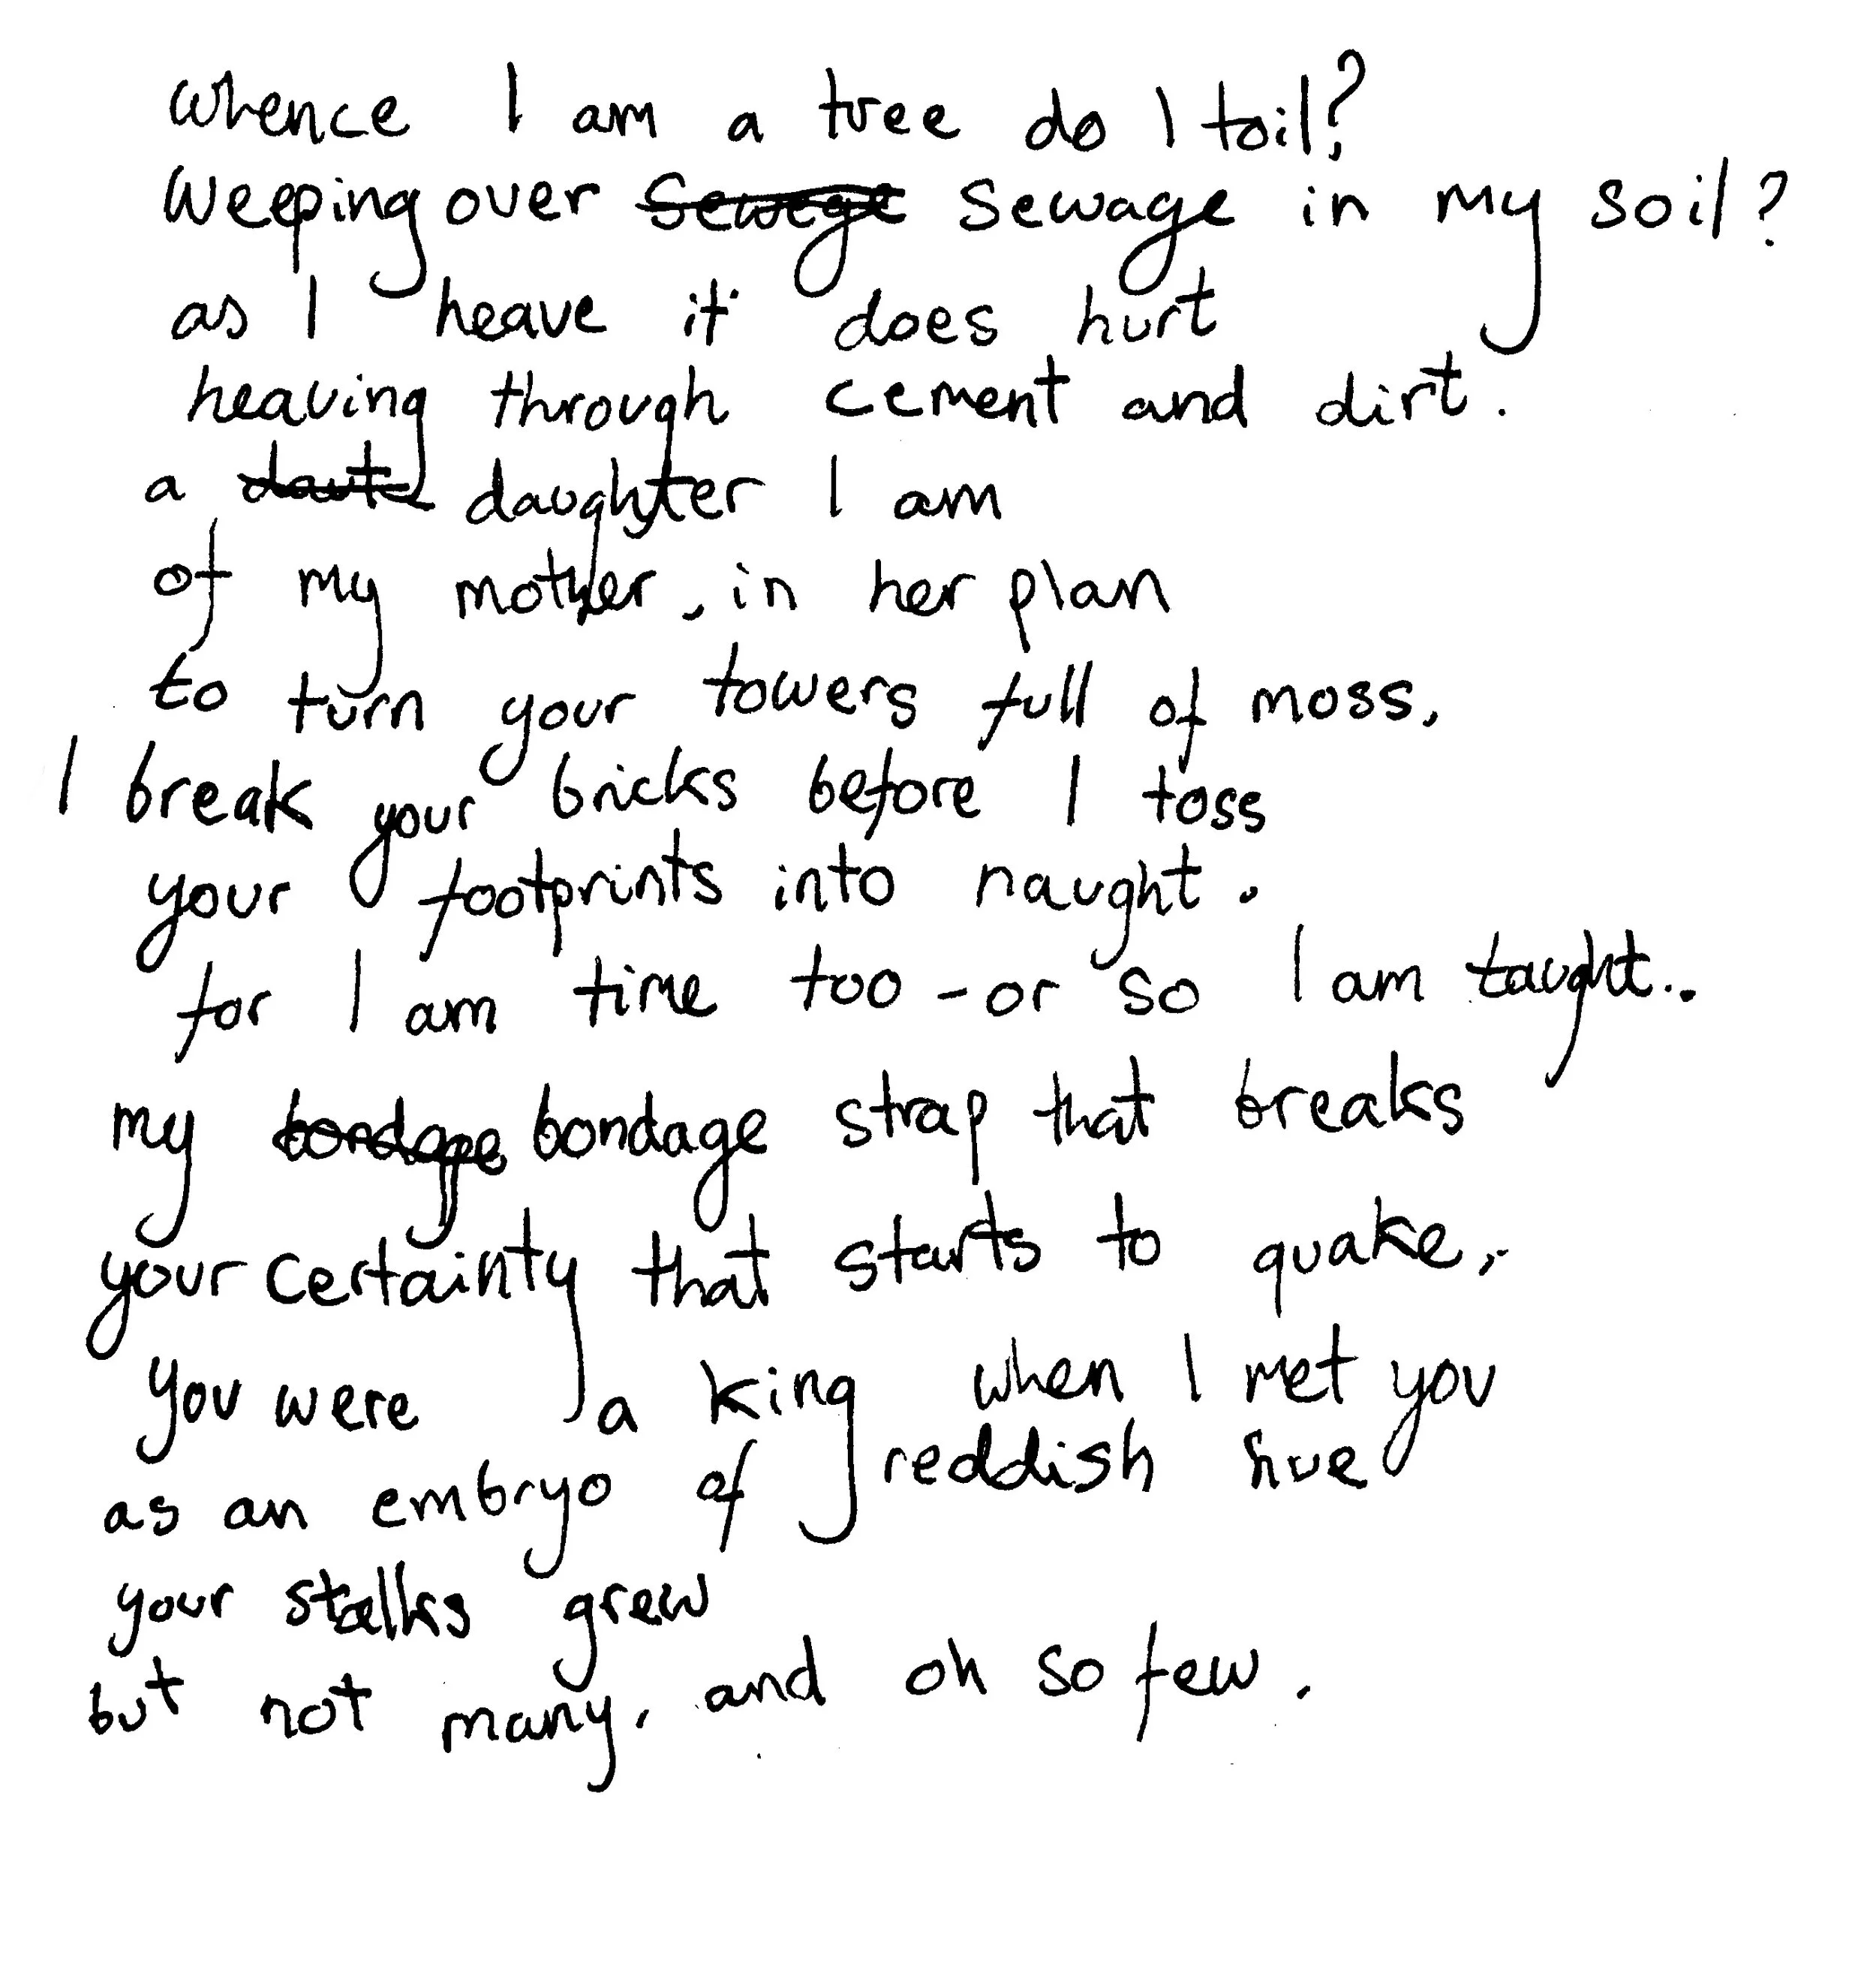 whence I am a tree do I toil?
Weeping over sewage in my soil?
as I heave it does hurt
heaving through cement and dirt.
a daughter I am
of my mother, in her plan
to turn your towers full of moss,
I break your bricks before I toss
your footprints into naught.
for I am time too - or so I am taught..
my bondage strap that breaks
your certainty that starts to quake,
you were a king when I met you
as an embryo of reddish hue
your stalks grew
but not many, and oh so few.